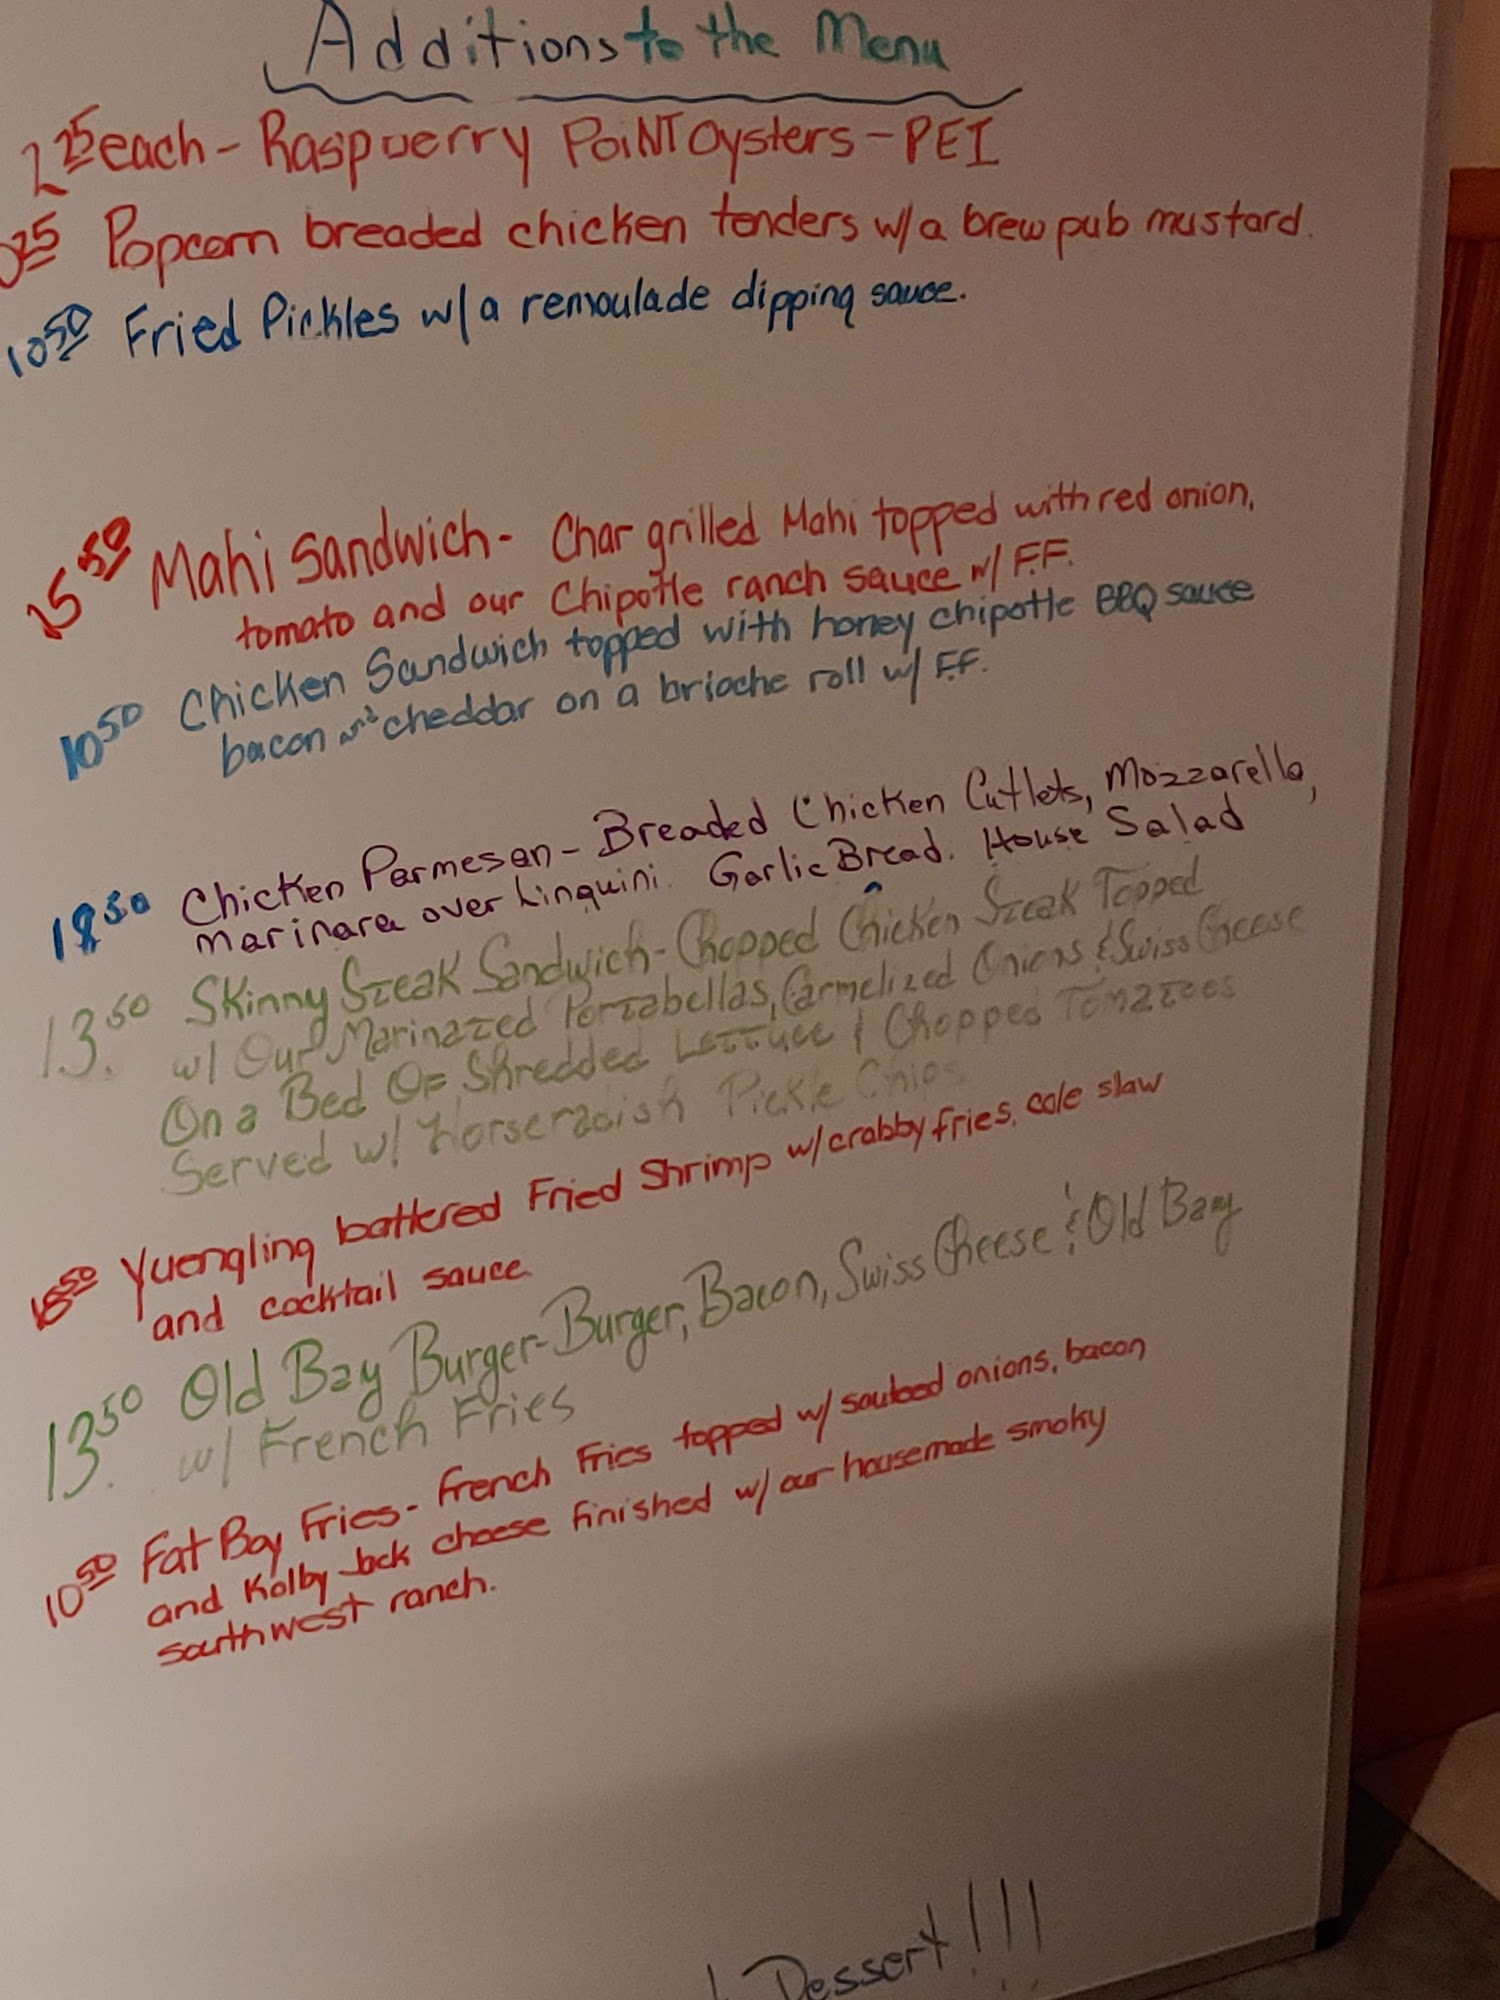 Additions to the Menu
2 25 each - Raspberry PoiNT Oysters - PEI
25 Popcorn breaded chicken tenders w/a brew pub mustard.
10 50 Fried Pickles w/a remoulade dipping sauce.
15 50 Mahi Sandwich - Char grilled Mahi topped with red onion,
tomato and our Chipotle ranch sauce w/ F.F.
10 50 Chicken Sandwich topped with honey chipotle BBQ sauce
bacon cheddar on a brioche roll w/ F.F.
18 50 Chicken Parmesan - Breaded Chicken Cutlets, Mozzarella,
Marinara over Linguini. Garlic Bread. House Salad
13. 50 Skinny Steak Sandwich - Chopped Chicken Steak Topped
w/ Our Marinated Portabellas, Carmelized Onions & Swiss Cheese
On a Bed Of Shredded Lettuce & Chopped Tomatoes
Served w/ Horseradish Pickle Chips
50 Yuengling battered Fried Shrimp w/ crabby fries, cole slaw
and cocktail sauce
13. 50 Old Bay Burger - Burger, Bacon, Swiss Cheese & Old Bay
w/ French Fries
10 50 Fat Boy Fries - French Fries topped w/ sauteed onions, bacon
and Kolby Jack cheese finished w/ our housemade smoky
southwest ranch.
Dessert!!!